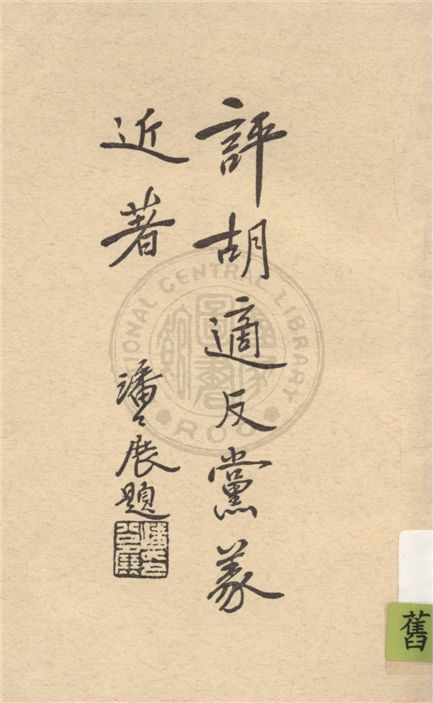 評胡適反黨義
近著
潘公展題
NATIONAL CENTRAL LIBRARY
ROC
舊